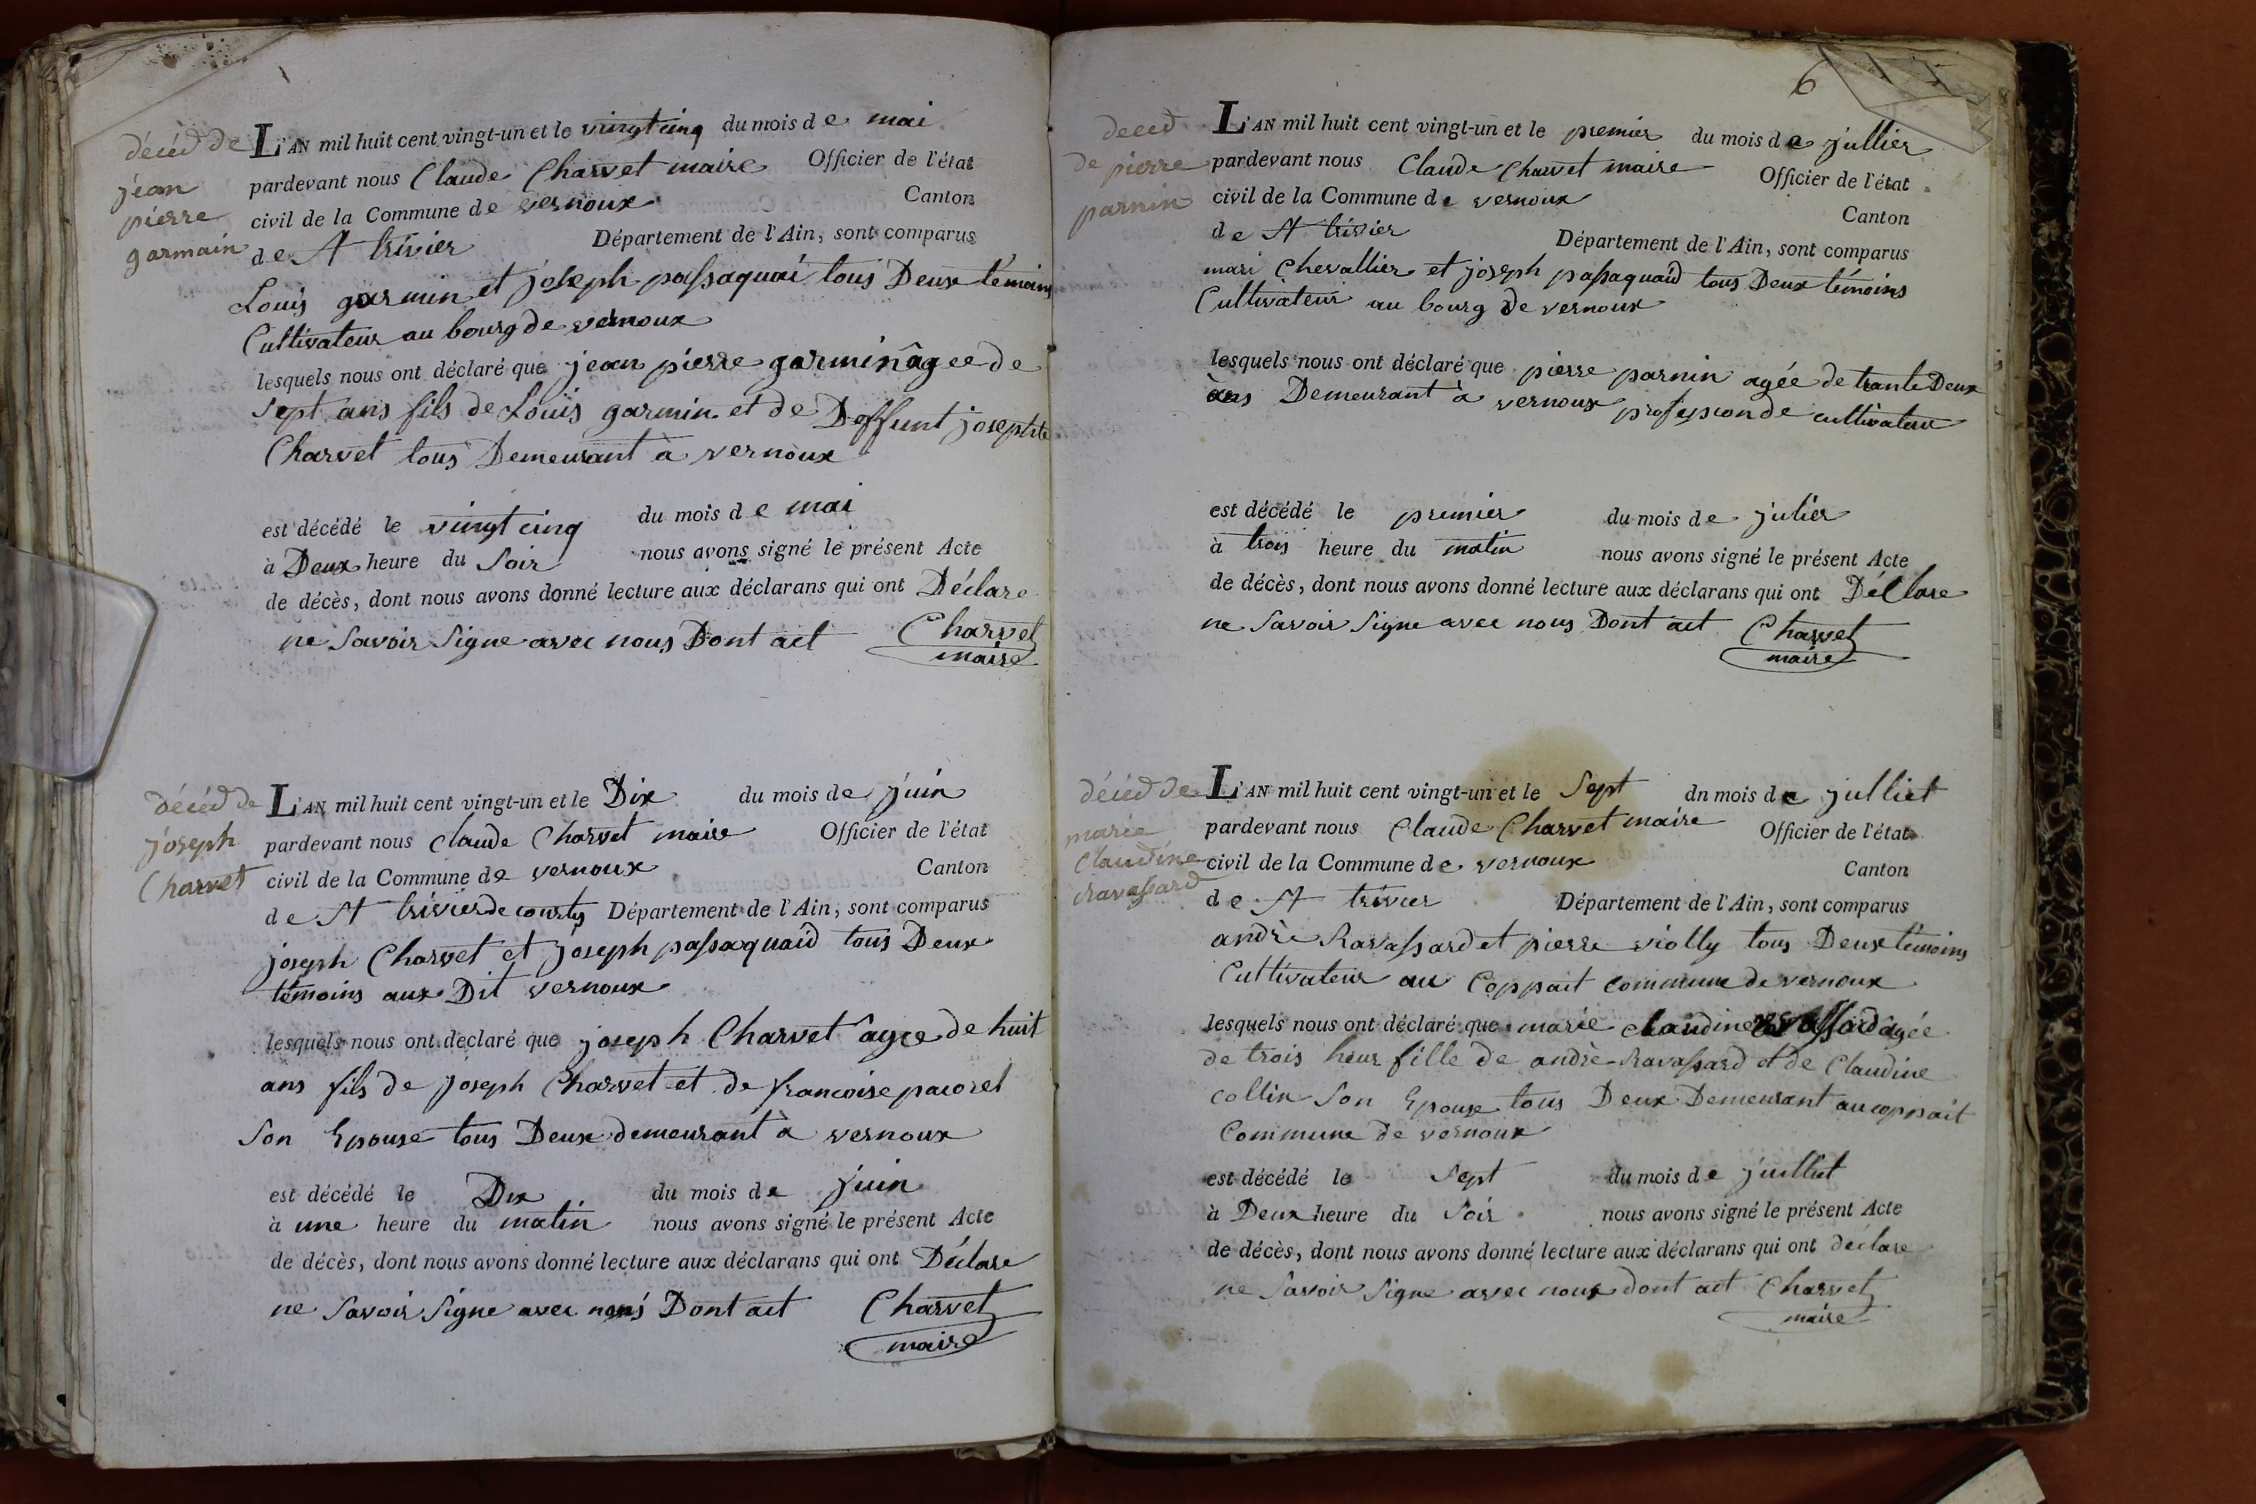 décéd de
jean
pierre
garmain
L'AN mil huit cent vingt-un et le vingt cinq du mois de mai
pardevant nous Claude Charvet maire Officier de l'état
civil de la Commune de vernoux Canton
de St trivier Département de l'Ain, sont comparus
Louis garmin et joseph passaquai tous Deux témoins
Cultivateur au bourg de vernoux
lesquels nous ont déclaré que jean pierre garmin âgee de
sept ans fils de Louis garmin et de Deffunt josephte
Charvet tous Demeurant à vernoux
est décédé le vingt cinq du mois de mai
à Deux heure du Soir nous avons signé le présent Acte
de décès, dont nous avons donné lecture aux déclarans qui ont Déclare
ne Savoir Signe avec nous Dont act Charvet
maire
décéd de
joseph
Charvet
L'AN mil huit cent vingt-un et le Dix du mois de juin
pardevant nous Claude Charvet maire Officier de l'état
civil de la Commune de vernoux Canton
de St trivier de courtes Département de l'Ain, sont comparus
joseph Charvet et joseph passaquaid tous Deux
témoins aux Dit vernoux
lesquels nous ont déclaré que joseph Charvet âgee de huit
ans fils de Joseph Charvet et de francoise pacoret
Son Epouse tous Deux demeurant à vernoux
est décédé le Dix du mois de juin
à une heure du matin nous avons signé le présent Acte
de décès, dont nous avons donné lecture aux déclarans qui ont Déclare
ne Savoir Signe avec nous Dont act Charvet
maire
6
deced
de pierre
parnin
L'AN mil huit cent vingt-un et le premier du mois de jullier
pardevant nous Claude Charvet maire Officier de l'état
civil de la Commune de vernoux Canton
de St trivier Département de l'Ain, sont comparus
mari Chevallier et joseph passaquaid tous Deux témoins
Cultivateur au bourg de vernoux
lesquels nous ont déclaré que pierre parnin agée de trante Deux
ans Demeurant à vernoux profession de cultivateur
est décédé le premier du mois de julier
à trois heure du matin nous avons signé le présent Acte
de décès, dont nous avons donné lecture aux déclarans qui ont Déclare
ne Savoir Signe avec nous Dont act Charvet
maire
décéd de
marie
Claudine
Ravassard
L'AN mil huit cent vingt-un et le Sept dn mois de julliet
pardevant nous Claude Charvet maire Officier de l'état
civil de la Commune de vernoux Canton
de St trivier Département de l'Ain, sont comparus
andrè Ravassard et pierre violly tous Deux témoins
Cultivateur au Coppait commune de vernoux
lesquels nous ont déclaré que marie claudine Ravassard agée
de trois heur fille de andrè Ravassard et de Claudine
collin Son Epouse tous Deux Demeurant au coppait
Commune de vernoux
est décédé le Sept du mois de juillet
à Deux heure du Soir nous avons signé le présent Acte
de décès, dont nous avons donné lecture aux déclarans qui ont déclare
ne Savoir Signe avec nous dont act Charvet
maire